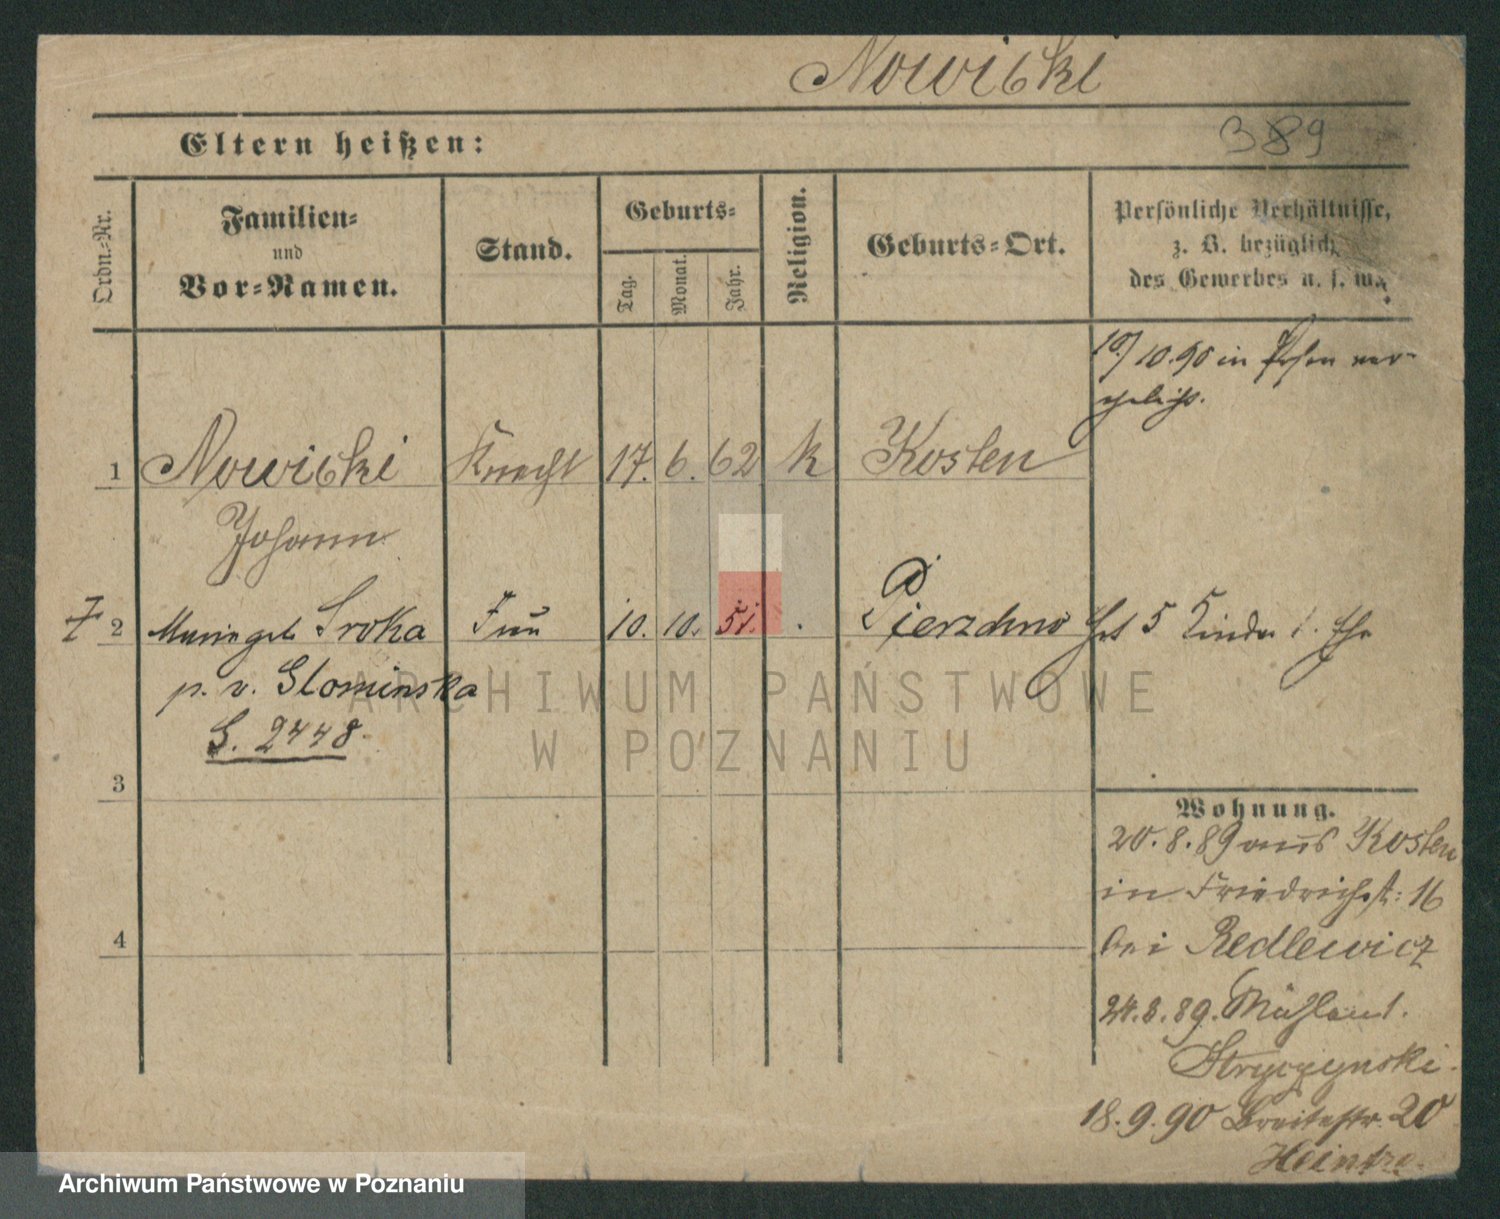 Nowicki
389
Eltern heißen:
Ordn.-Nr.
Familien-
und
Vor-Namen.
Stand.
Geburts-
Tag.
Monat.
Jahr.
Religion.
Geburts-Ort.
Persönliche Verhältnisse,
z. B. bezüglich
des Gewerbes u. s. w.
10/10.90 in Posen ver-
ehelicht.
1 Nowicki Knecht 17. 6. 62 k Kosten
Johann
2 geb Sroka Frau 10. 10. 51. Pierzchno hat 5 Kinder 1. Ehe
p. v. Slominska
S. 2448
3
Wohnung.
20.8.89 aus Kosten
in Friedrichst: 16
4
bei Redlewicz
24.8.89. Mühlenst.
Stryczynski.
18.9.90 Breitestr. 20
Heintze
ARCHIWUM PAŃSTWOWE
W POZNANIU
Archiwum Państwowe w Poznaniu